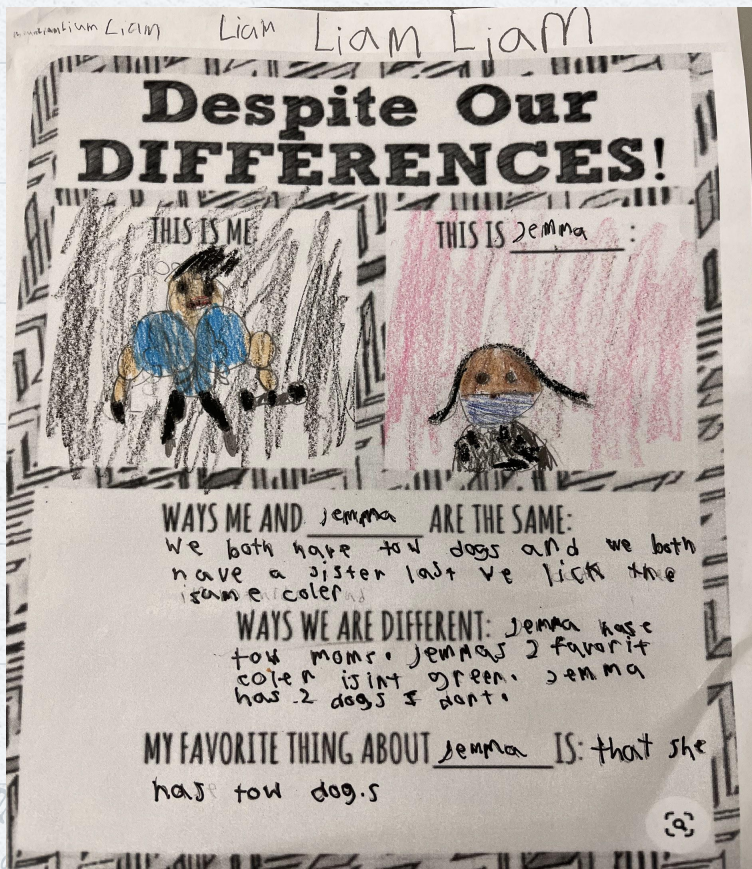 Liam Liam Liam Liam
Despite Our
DIFFERENCES!
THIS IS ME:
THIS IS Jemma :
WAYS ME AND Jemma ARE THE SAME:
We both have tow dogs and we both
have a sister last we lick the
same coler
WAYS WE ARE DIFFERENT: Jemma hase
tow moms. Jemmas 2 favorit
coler isint green. Jemma
has 2 dogs I dont.
MY FAVORITE THING ABOUT Jemma IS: that she
has tow dog.s